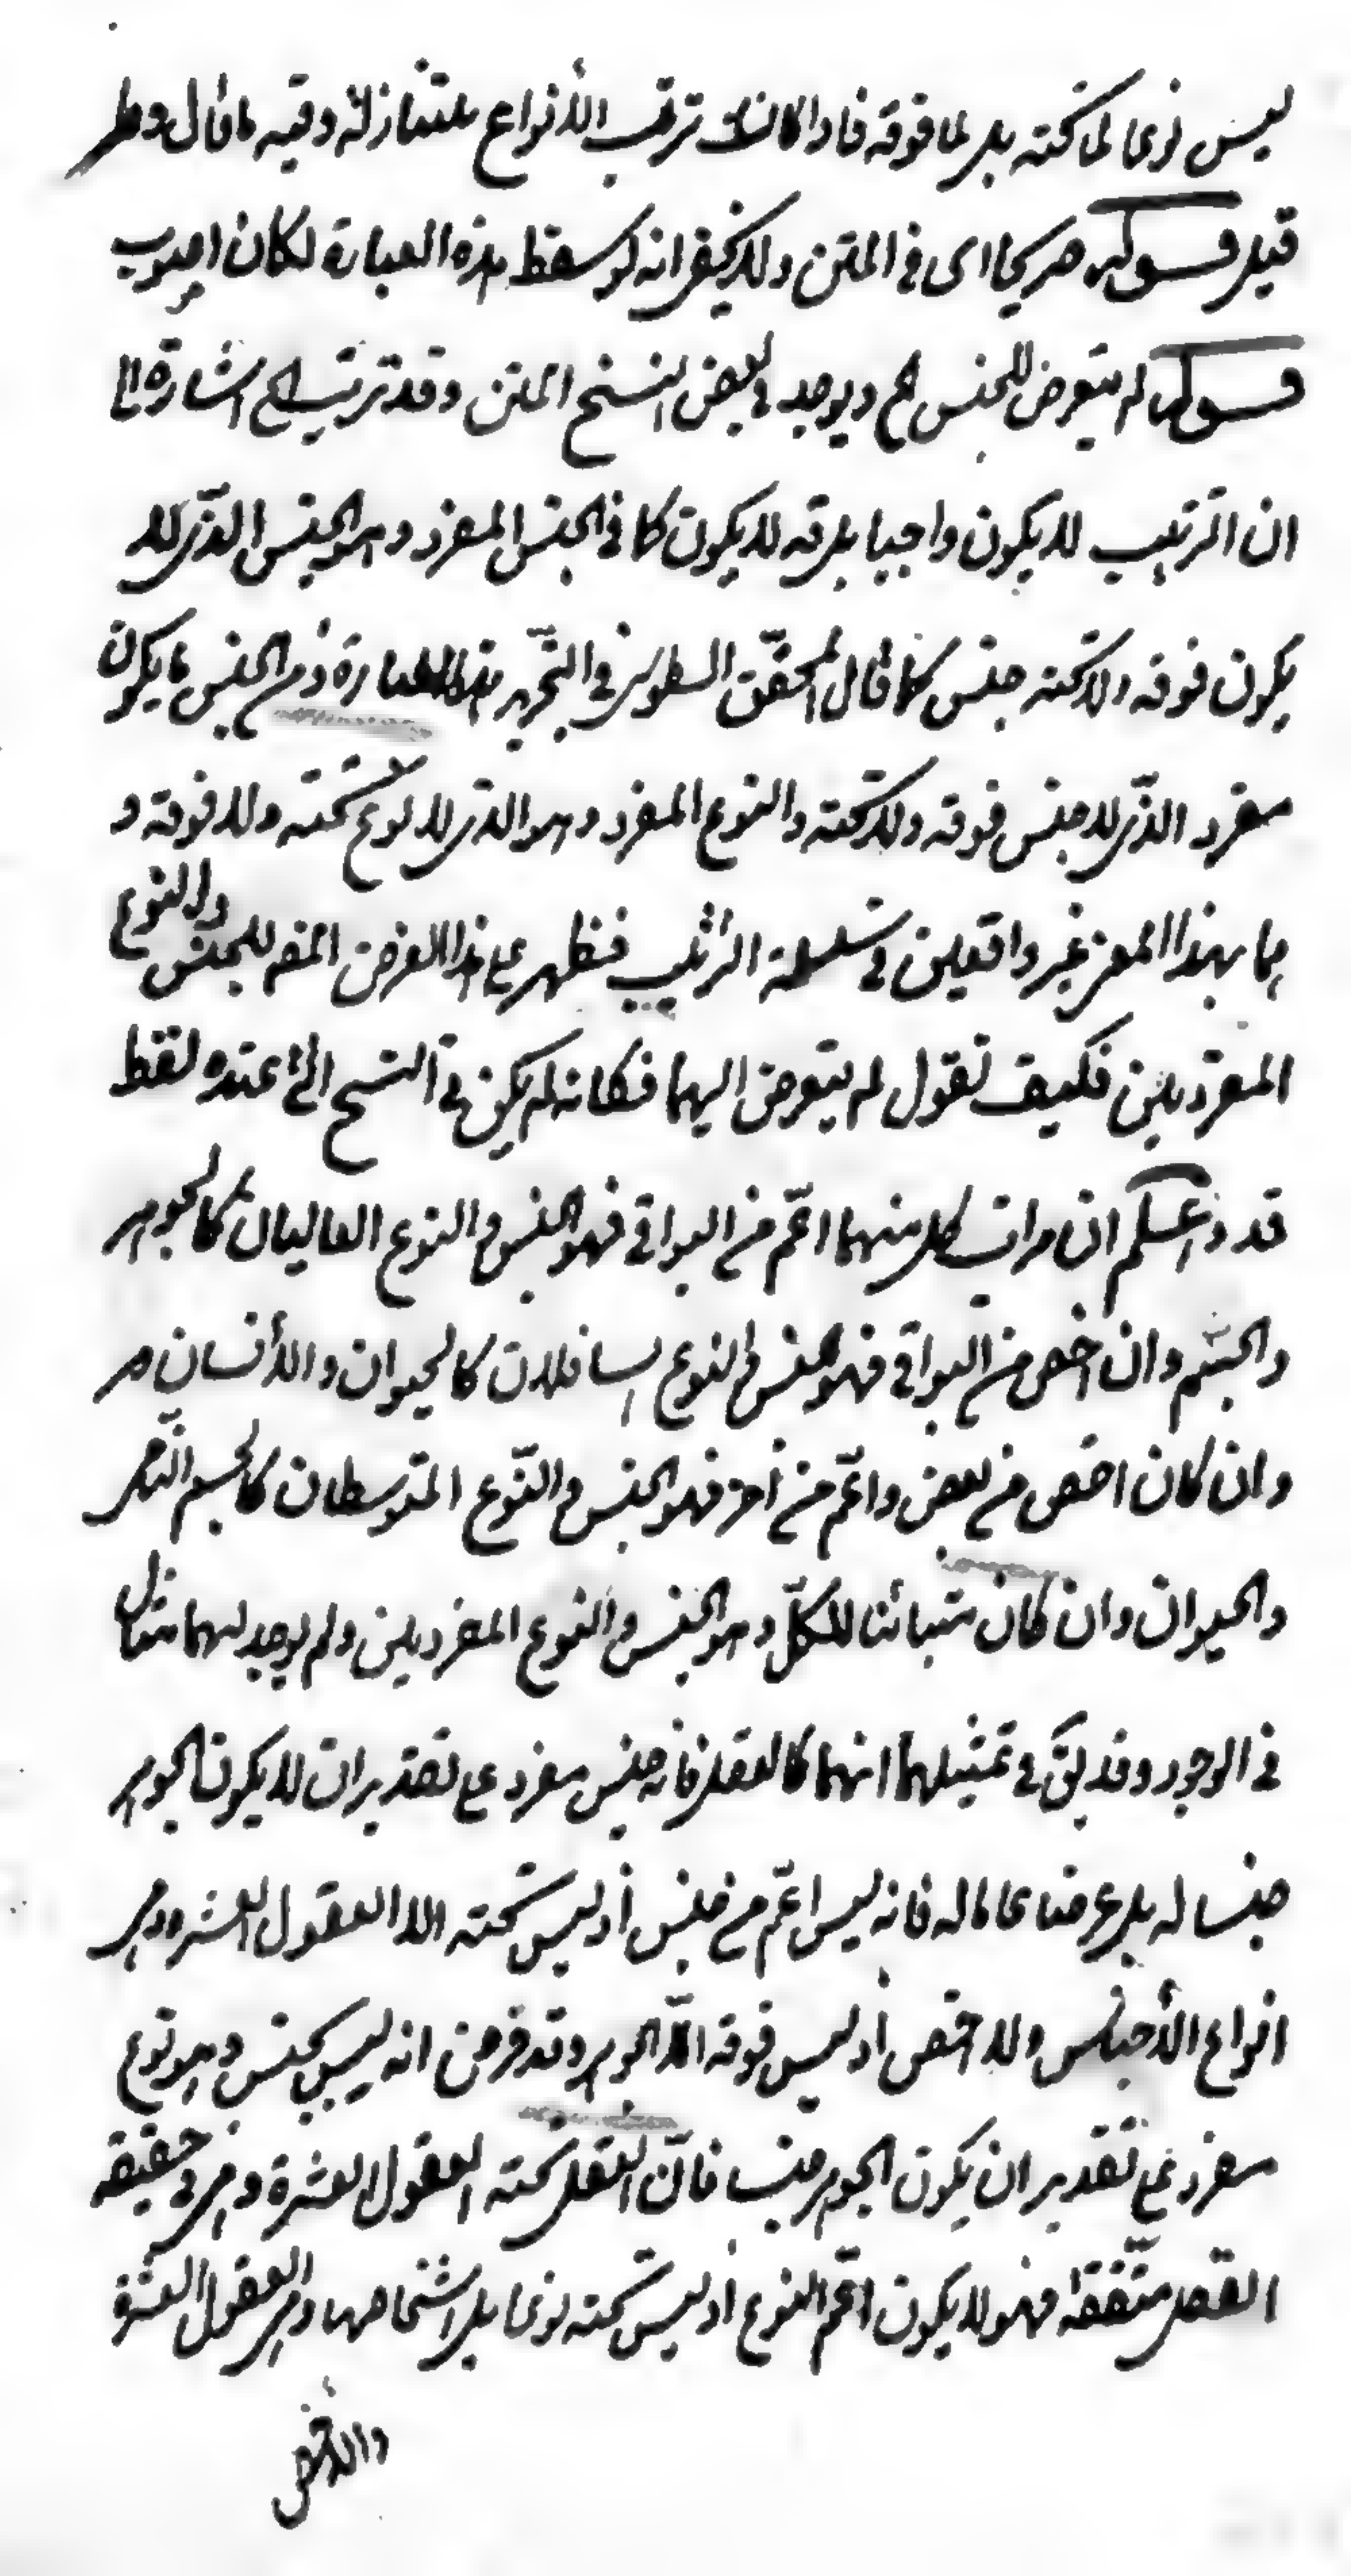 ليس نوعا لما تحته بل لما فوقه فاذا كان كك ترتب الأنواع متنازلة وفيه ما قال وطر
قيل قوله صريحا اى في المتن ولا يخفى انه لو سقط هذه العبارة لكان اصوب
قوله لم يتعرض للجنس الخ ويوجد في بعض النسخ المتن وقد ترتب الخ اشارة الى
ان الترتيب لا يكون واجبا بل قد لا يكون كما في الجنس المفرد وهو الجنس الذى لا
يكون فوقه ولا تحته جنس كما قال المحقق الطوسى في التجريد بهذا العبارة ومن الجنس ما يكون
مفرد الذى لا جنس فوقه ولا تحته والنوع المفرد وهو الذى لا نوع تحته ولا فوقه و
هما بهذا المعنى غير واقعين في سلسلة الترتيب فظهر على هذا الغرض المص للجنس والنوع
المفردين فكيف تقول لم يتعرض اليهما فكانه لم يكن في النسخ التى عنده لفظ
قد واعلم ان مراتب كل منهما اعم من البواقى فهو الجنس والنوع العاليان كالجوهر
والجسم وان اخص من البواقى فهو الجنس والنوع السافلان كالحيوان والأنسان
وان كان اخص من بعض واعم من آخر فهو الجنس والنوع المتوسطان كالجسم النامى
والحيوان وان كان متبائنا للكل وهو الجنس والنوع المفردين ولم يوجد لهما مثال
في الوجود وقد يق في تمثيلهما انهما كالعقل فانه جنس مفرد على تقدير ان لا يكون الجوهر
جنسا له بل عرضا عاما له فانه ليس اعم من جنس اذ ليس تحته الا العقول العشر وهى
انواع الأجناس ولا اخص اذ ليس فوقه الا الجوهر وقد فرض انه ليس بجنس وهو نوع
مفرد على تقدير ان يكون الجوهر جنسا فان العقل تحته العقول العشرة وهى في حقيقة
العقل متفقة فهو لا يكون اعم النوع اذ ليس تحته نوعا بل اشخاصها وهى العقول العشرة
والاخص